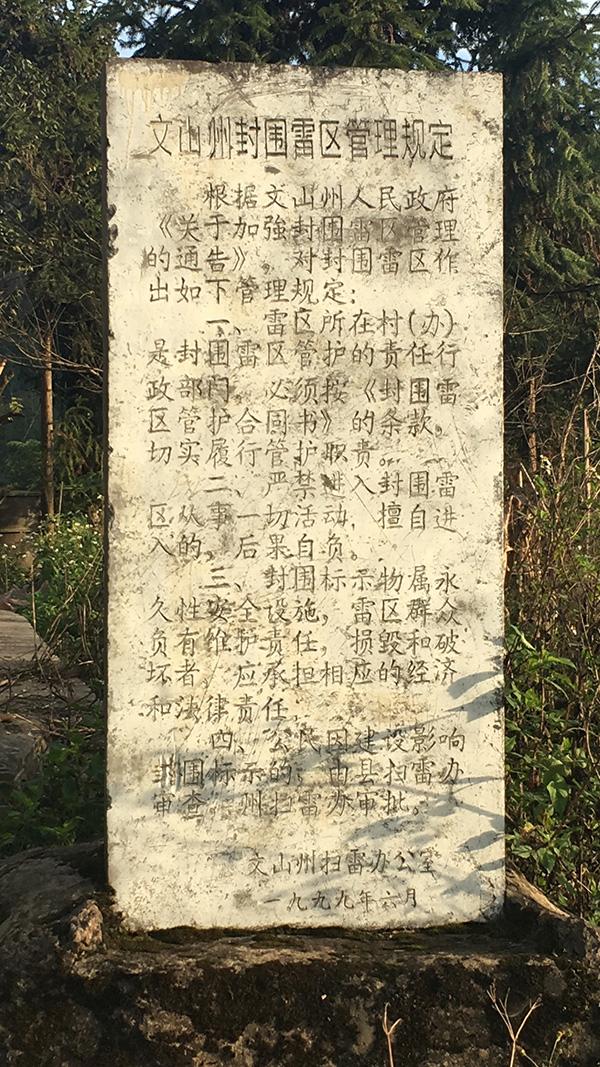 文山州封围雷区管理规定
根据文山州人民政府
《关于加强封围雷区管理
的通告》。对封围雷区作
出如下管理规定：
一、雷区所在村(办)
是封围雷区管护的责任行
政部门，必须按《封围雷
区管护合同书》的条款。
切实履行管护职责。
二、严禁进入封围雷
区从事一切活动，擅自进
入的，后果自负。
三、封围标示物属永
久性安全设施，雷区群众
负有维护责任，损毁和破
坏者，应承担相应的经济
和法律责任，
四、公民因建设影响
封围标示的；由县扫雷办
审查。州扫雷办审批。
文山州扫雷办公室
一九九九年六月